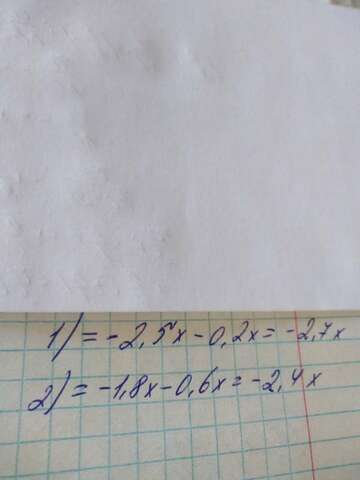 1) = -2,5x - 0,2x = -2,7x
2) = -1,8x - 0,6x = -2,4x